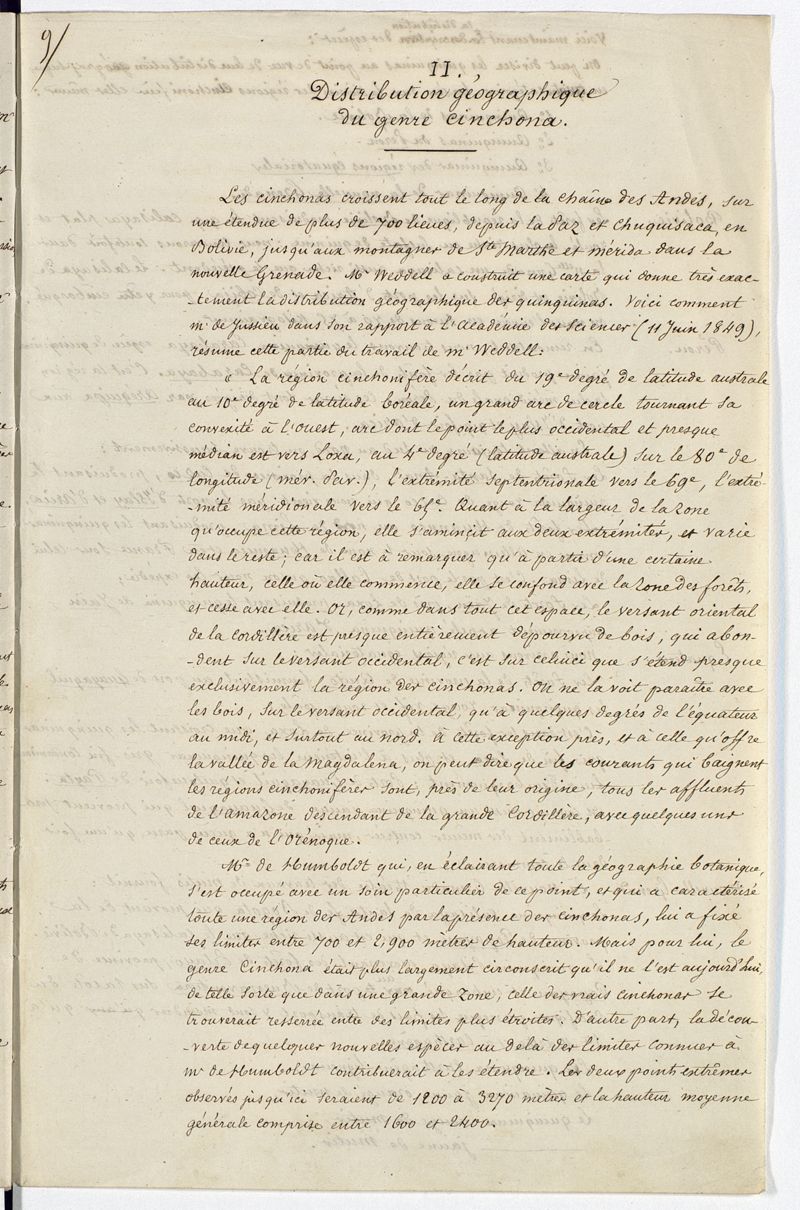 9/
II.
Distribution géographique
du genre cinchona.
Les cinchonas croissent tout le long de la chaîne des Andes, sur
une étendue de plus de 700 lieues, depuis la Paz et Chuquisaca, en
Bolivie, jusqu'aux montagnes de Ste Marthe et mérida dans la
nouvelle Grenade. Mr Weddell a construit une carte qui donne très exac-
-tement la distribution géographique des quinquinas. Voici comment
mr de Jussieu dans son rapport à l'académie des sciences (11 Juin 1849),
résume cette partie du travail de mr Weddell:
« La région cinchonifère décrit du 19e degré de latitude australe
au 10e degré de latitude boréale, un grand arc de cercle tournant sa
convexité à l'ouest, arc dont le point le plus occidental et presque
médian est vers Loxa, au 4e degré (latitude australe) sur le 80e de
longitude (mér. Par.), l'extrémité septentrionale vers le 69e, l'extré-
-mité méridionale vers le 65e. Quant à la largeur de la zone
qu'occupe cette région, elle s'amincit aux deux extrémités, et varie
dans le reste; car il est à remarquer qu'à partir d'une certaine
hauteur, celle où elle commence, elle se confond avec la zone des forêts,
et cesse avec elle. Or, comme dans tout cet espace, le versant oriental
de la cordillère est presque entièrement dépourvu de bois, qui abon-
-dent sur le versant occidental, c'est sur celui ci que s'étend presque
exclusivement la région des cinchonas. On ne la voit paraître avec
les bois, sur le versant occidental, qu'à quelques degrés de l'équateur
au midi, et surtout au nord. à cette exception près, et à celle qu'offre
la vallée de la Magdalena, on peut dire que les courants qui baignent
les régions cinchonifères sont, près de leur origine, tous les affluents
de l'amazone descendant de la grande Cordillère, avec quelques uns
de ceux de l'Orénoque.
Mr de Humboldt qui, en éclairant toute la géographie botanique,
s'est occupé avec un soin particulier de ce point, et qui a caractérisé
toute une région des Andes par la présence des cinchonas, lui a fixé
ses limites entre 700 et 2,900 mètres de hauteur. Mais pour lui, le
genre Cinchona était plus largement circonscrit qu'il ne l'est aujourd'hui,
de telle sorte que dans une grande zone, celle des vrais cinchonas se
trouverait resserrée entre des limites plus étroites. D'autre part, la décou-
-verte de quelques nouvelles espèces au delà des limites connues à
mr de Humboldt contribuerait à les étendre. Les deux points extrêmes
observés jusqu'ici seraient de 1200 à 3270 mètres et la hauteur moyenne
générale comprise entre 1600 et 2400.